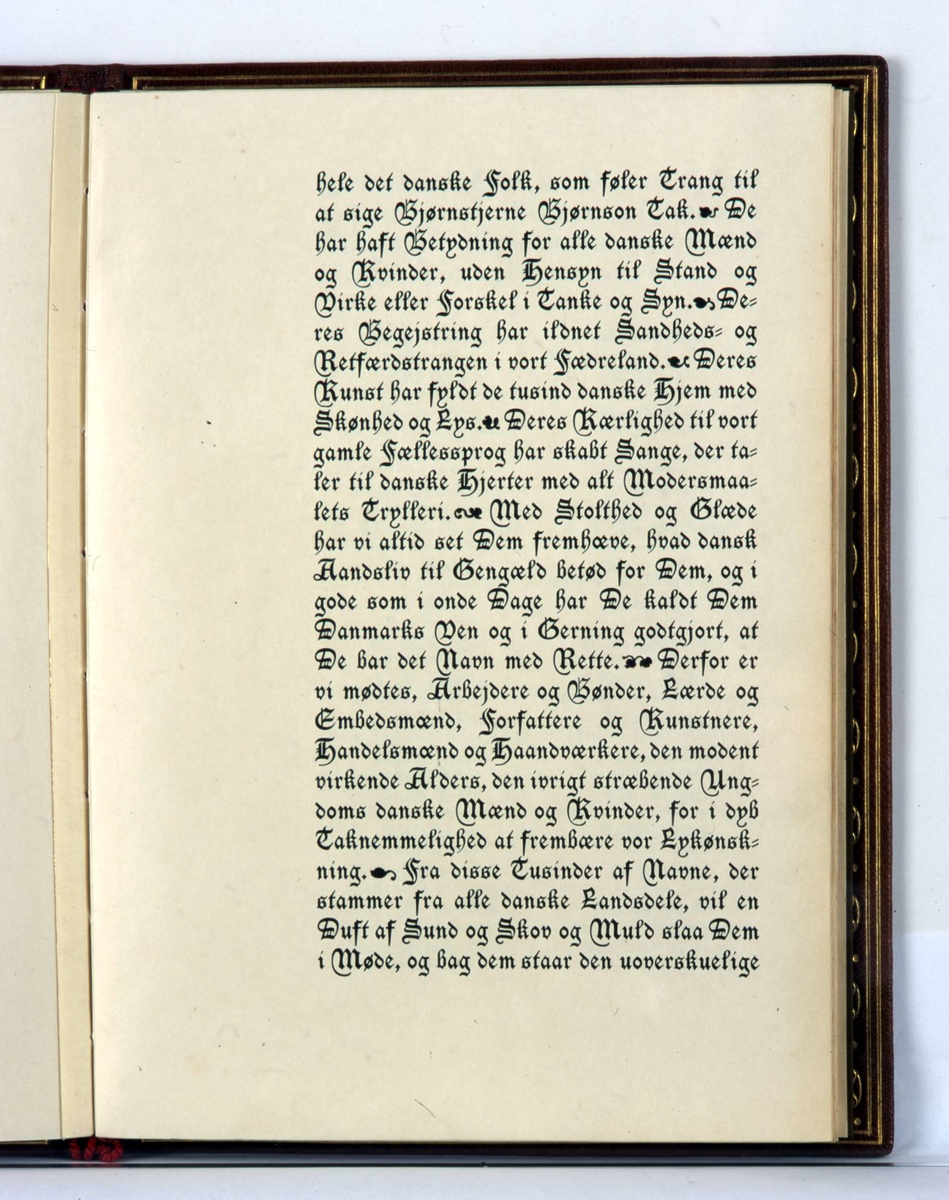 hele det danske Folk, som føler Trang til
at sige Bjørnstjerne Bjørnson Tak. De
har haft Betydning for alle danske Mænd
og Kvinder, uden Hensyn til Stand og
Virke eller Forskel i Tanke og Syn. De-
res Begejstring har ildnet Sandheds- og
Retfærdstrangen i vort Fædreland. Deres
Kunst har fyldt de tusind danske Hjem med
Skønhed og Lys. Deres Kærlighed til vort
gamle Fællessprog har skabt Sange, der ta-
ler til danske Hjerter med alt Modersmaa-
lets Trylleri. Med Stolthed og Glæde
har vi altid set Dem fremhæve, hvad dansk
Aandsliv til Gengæld betød for Dem, og i
gode som i onde Dage har De kaldt Dem
Danmarks Ven og i Gerning godtgjort, at
De bar det Navn med Rette. Derfor er
vi mødtes, Arbejdere og Bønder, Lærde og
Embedsmænd, Forfattere og Kunstnere,
Handelsmænd og Haandværkere, den modent
virkende Alders, den ivrigt stræbende Ung-
doms danske Mænd og Kvinder, for i dyb
Taknemmelighed at frembære vor Lykønsk-
ning. Fra disse Tusinder af Navne, der
stammer fra alle danske Landsdele, vil en
Duft af Sund og Skov og Muld slaa Dem
i Møde, og bag dem staar den uoverskuelige